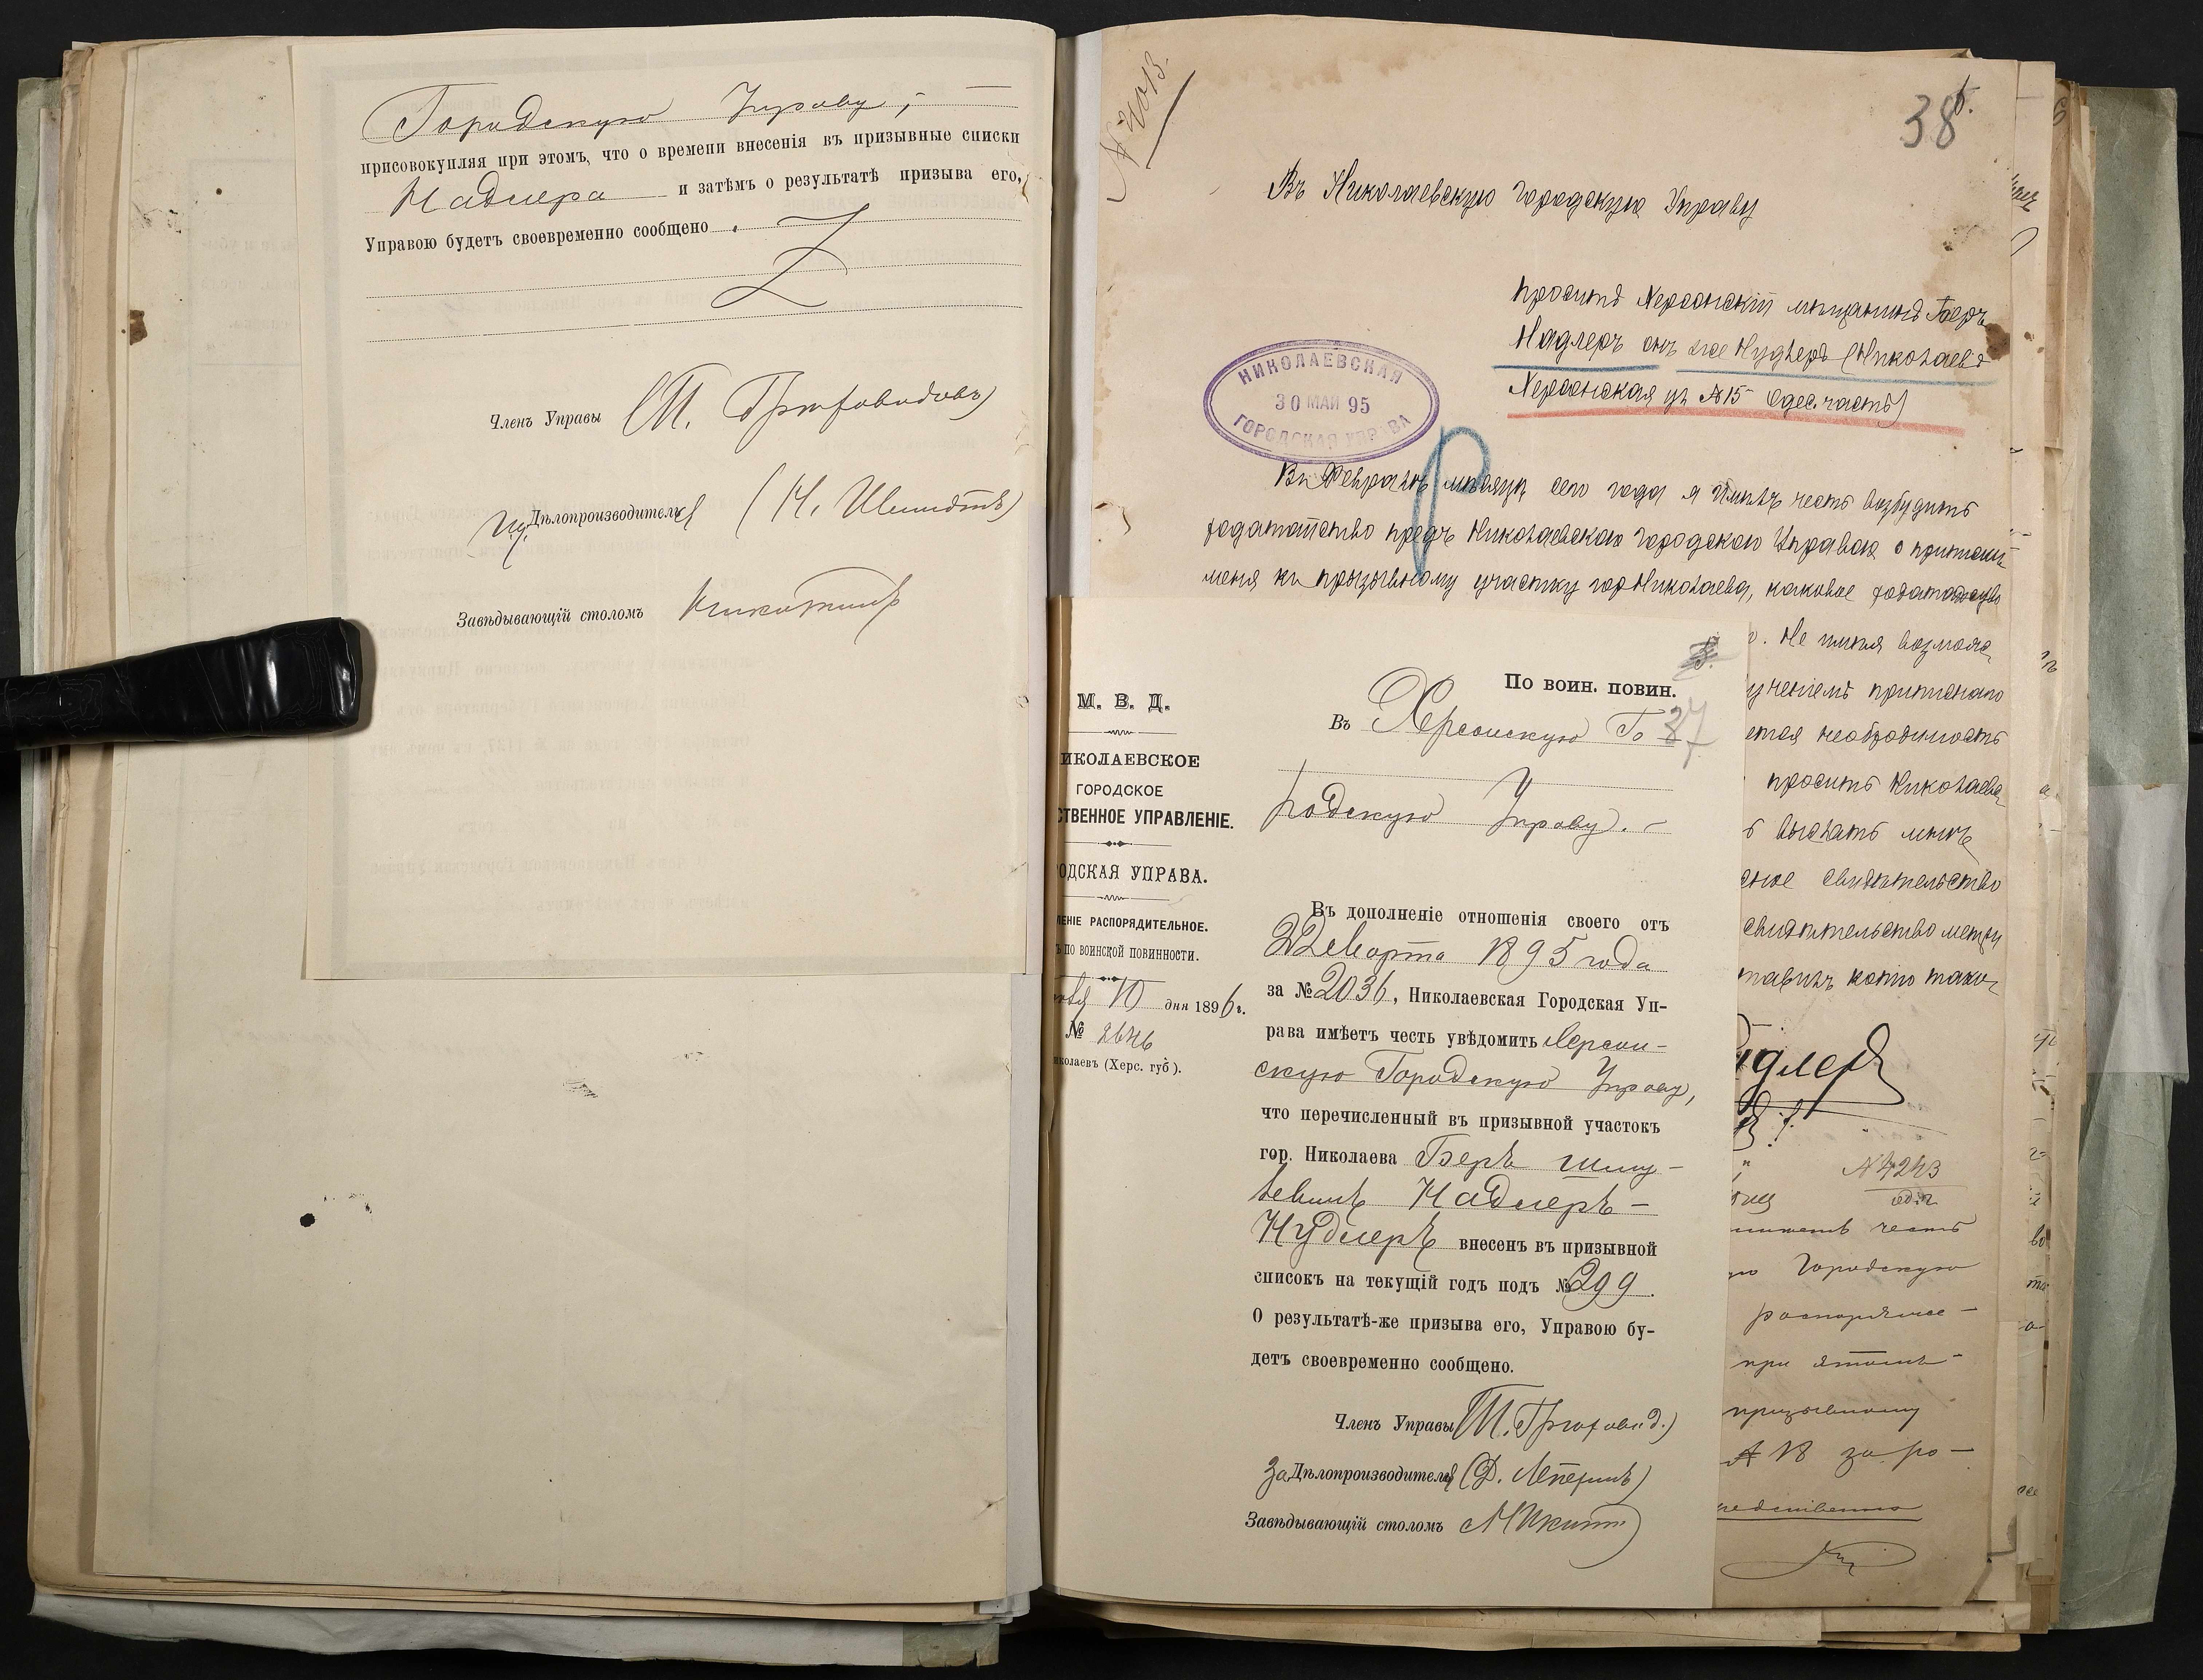 Городскую Управу, —
присовокупляя при этомъ, что о времени внесенія въ призывные списки
Надлера и затѣмъ о результатѣ призыва его,
Управою будетъ своевременно сообщено.
Членъ Управы
Дѣлопроизводителя (Н. Шмидтъ)
Завѣдывающій столомъ
38
Въ Николаевскую Городскую Управу
проситъ Херсонскій мѣщанинъ Беръ
Надлеръ онъ же Нудлеръ (Николаевъ
Херсонская ул №15 Одес. часть)
НИКОЛАЕВСКАЯ
30 МАЙ 95
ГОРОДСКАЯ УПРАВА
Въ Февралѣ мѣсяцѣ сего года я имѣлъ честь возбудить
ходатайство предъ Николаевскою Городскою Управою о припискѣ
меня къ призывному участку гор Николаева, каковое ходатайство
. Не имѣя возмож-
ученіемъ приписного
ется необходимость
просить Николаев-
ъ выслать мнѣ
свидѣтельство
свидѣтельство метри
тавилъ копію тако-
№4243
имѣетъ честь
Городскую
распоряже-
при этомъ
призывному
№ 18 за ро-
По воин. повин.
37
Въ Херсонскую Го-
родскую Управу. -
М. В. Д.
ИКОЛАЕВСКОЕ
ГОРОДСКОЕ
СТВЕННОЕ УПРАВЛЕНІЕ.
ОДСКАЯ УПРАВА.
ЛЕНІЕ РАСПОРЯДИТЕЛЬНОЕ.
ъ ПО ВОИНСКОЙ ПОВИННОСТИ.
10 дня 1896 г.
№ 2646
иколаевъ (Херс. губ).
Въ дополненіе отношенія своего отъ
22 Марта 1895 года
за № 2036, Николаевская Городская Уп-
рава имѣетъ честь увѣдомить Херсон-
скую Городскую Управу,
что перечисленный въ призывной участокъ
гор. Николаева Беръ Шму-
левичъ Надлеръ-
Нудлеръ внесенъ въ призывной
списокъ на текущій годъ подъ № 299.
О результатѣ-же призыва его, Управою бу-
детъ своевременно сообщено.
Членъ Управы
За Дѣлопроизводителя
Завѣдывающій столомъ